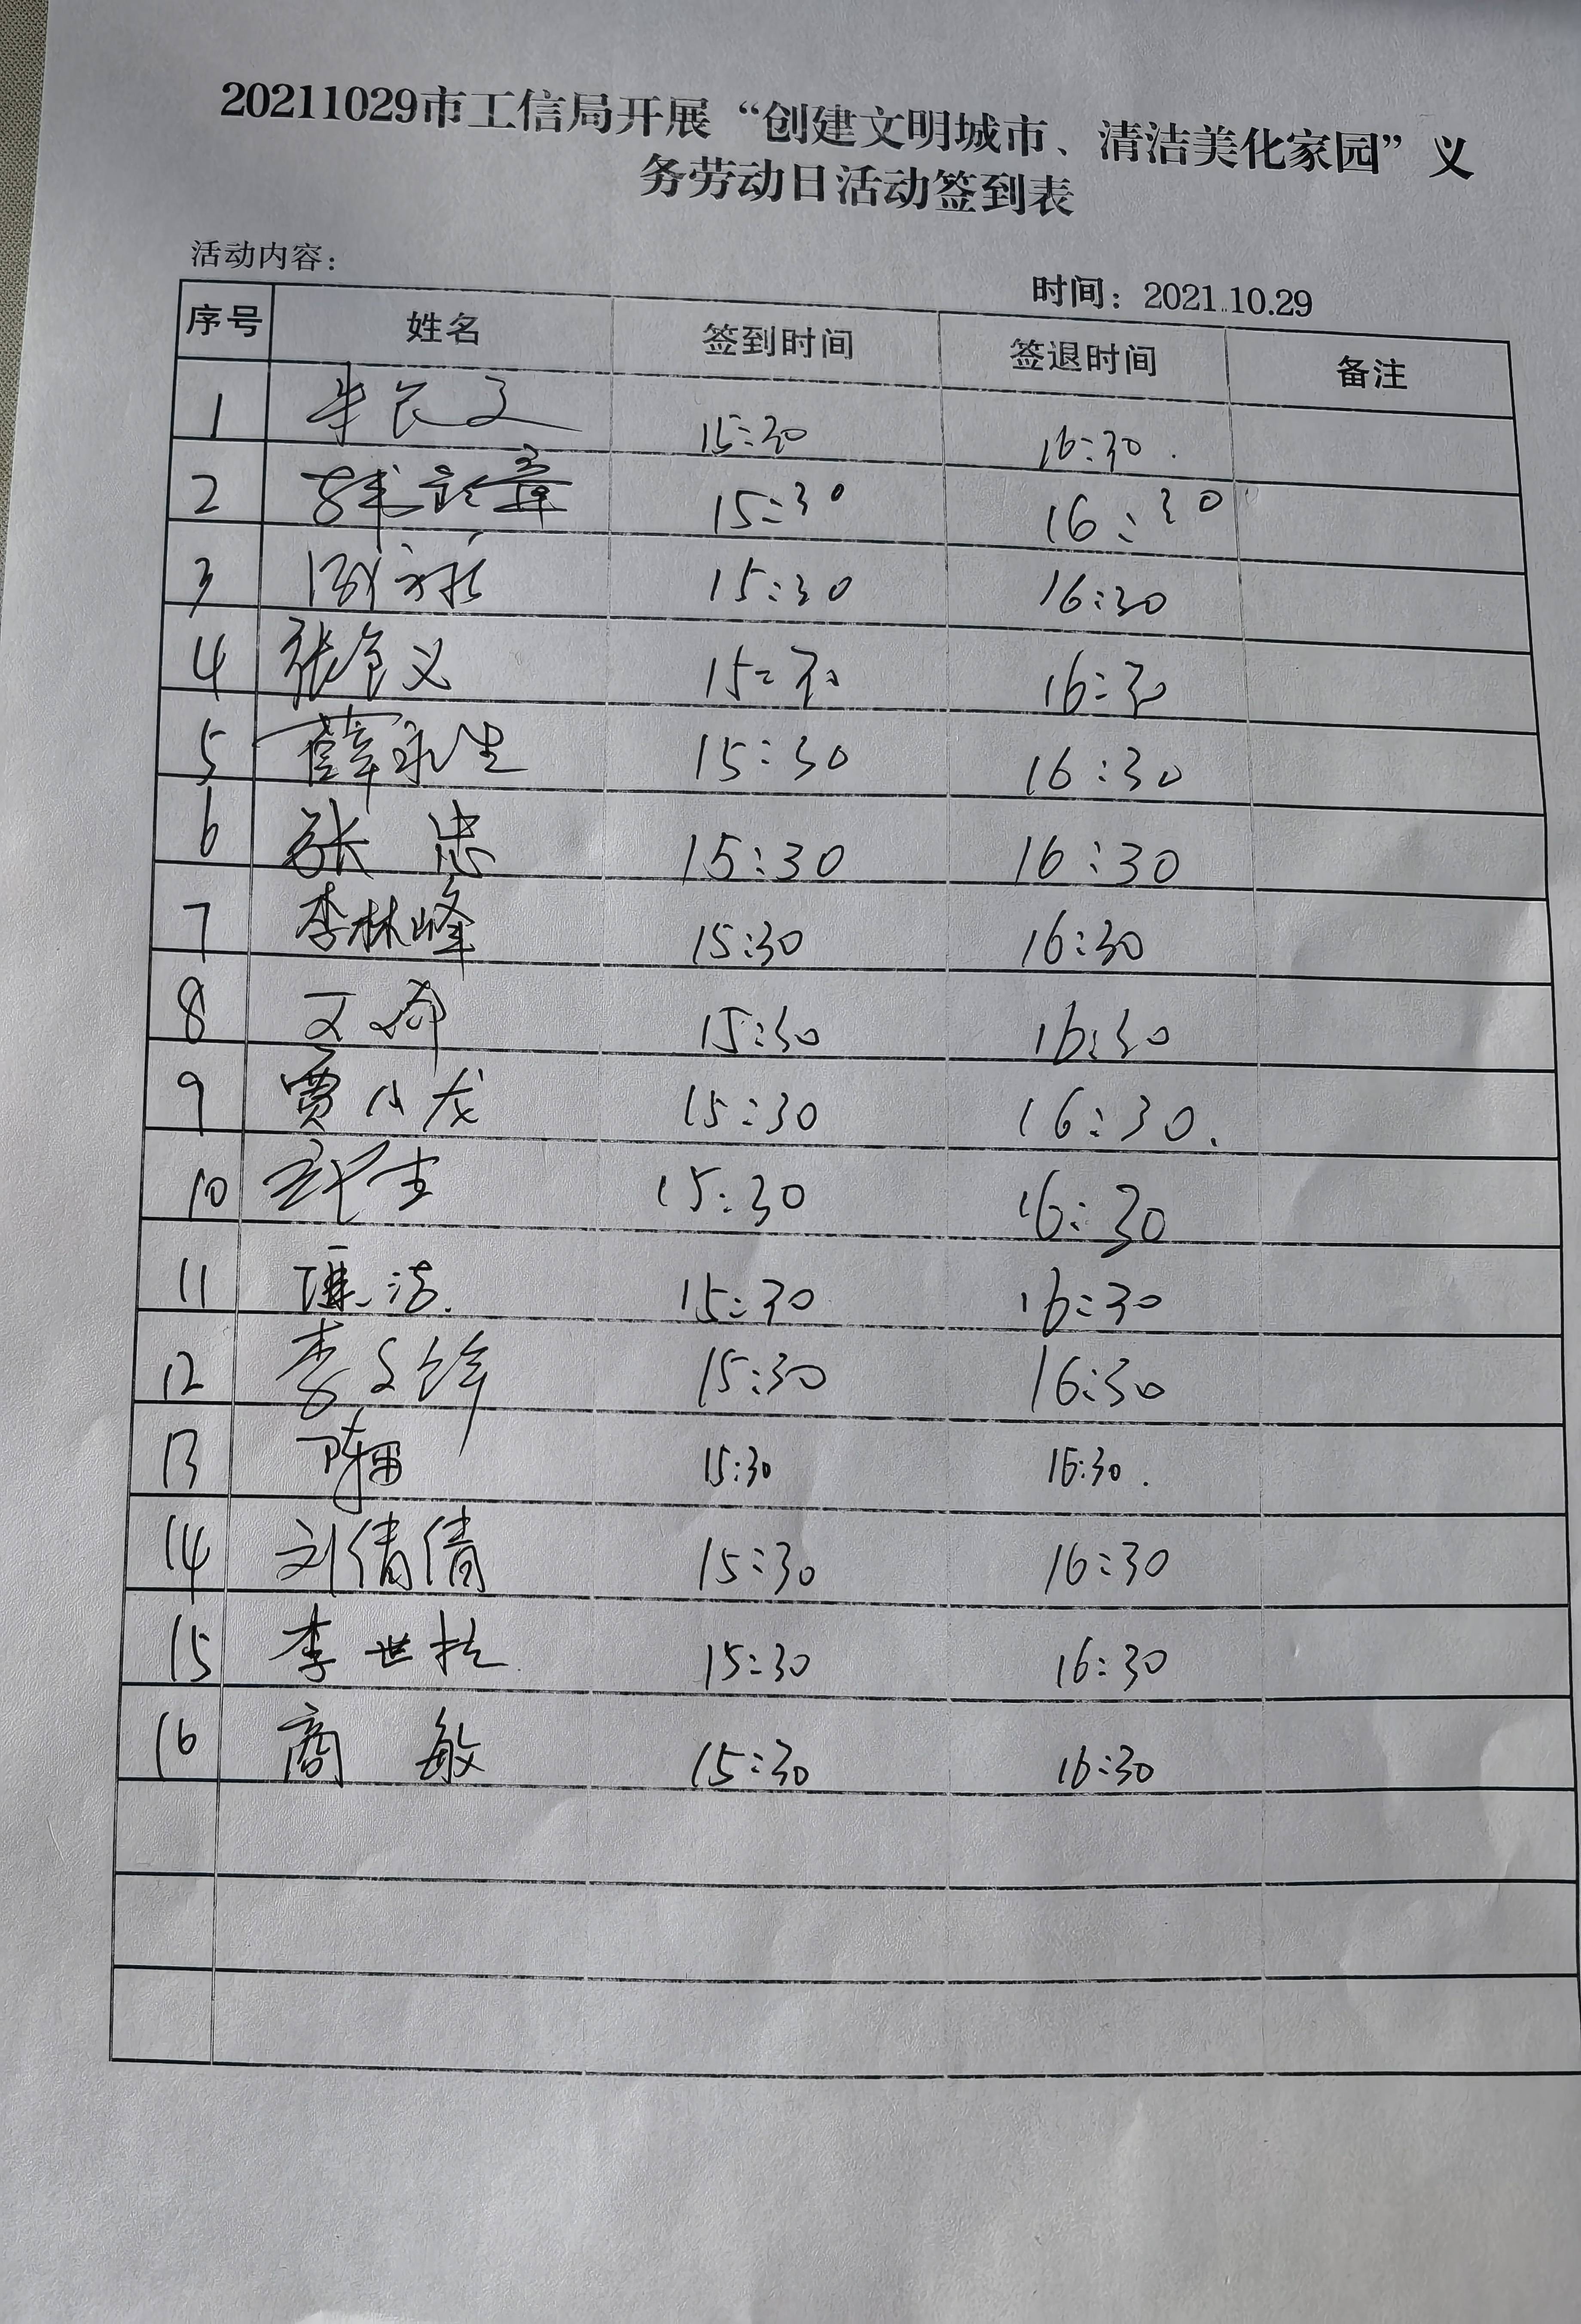 20211029市工信局开展“创建文明城市、清洁美化家园”义
务劳动日活动签到表
活动内容：
时间：2021.10.29
序号 姓名 签到时间 签退时间 备注
1 15:30 16:30
2 15:30 16:30
3 15:30 16:30
4 张 义 15:30 16:30
5 薛永生 15:30 16:30
6 张忠 15:30 16:30
7 李林峰 15:30 16:30
8 15:30 16:30
9 贾小龙 15:30 16:30
10 15:30 16:30
11 15:30 16:30
12 李文锋 15:30 16:30
13 15:30 16:30
14 刘倩倩 15:30 16:30
15 李世 15:30 16:30
16 商敏 15:30 16:30